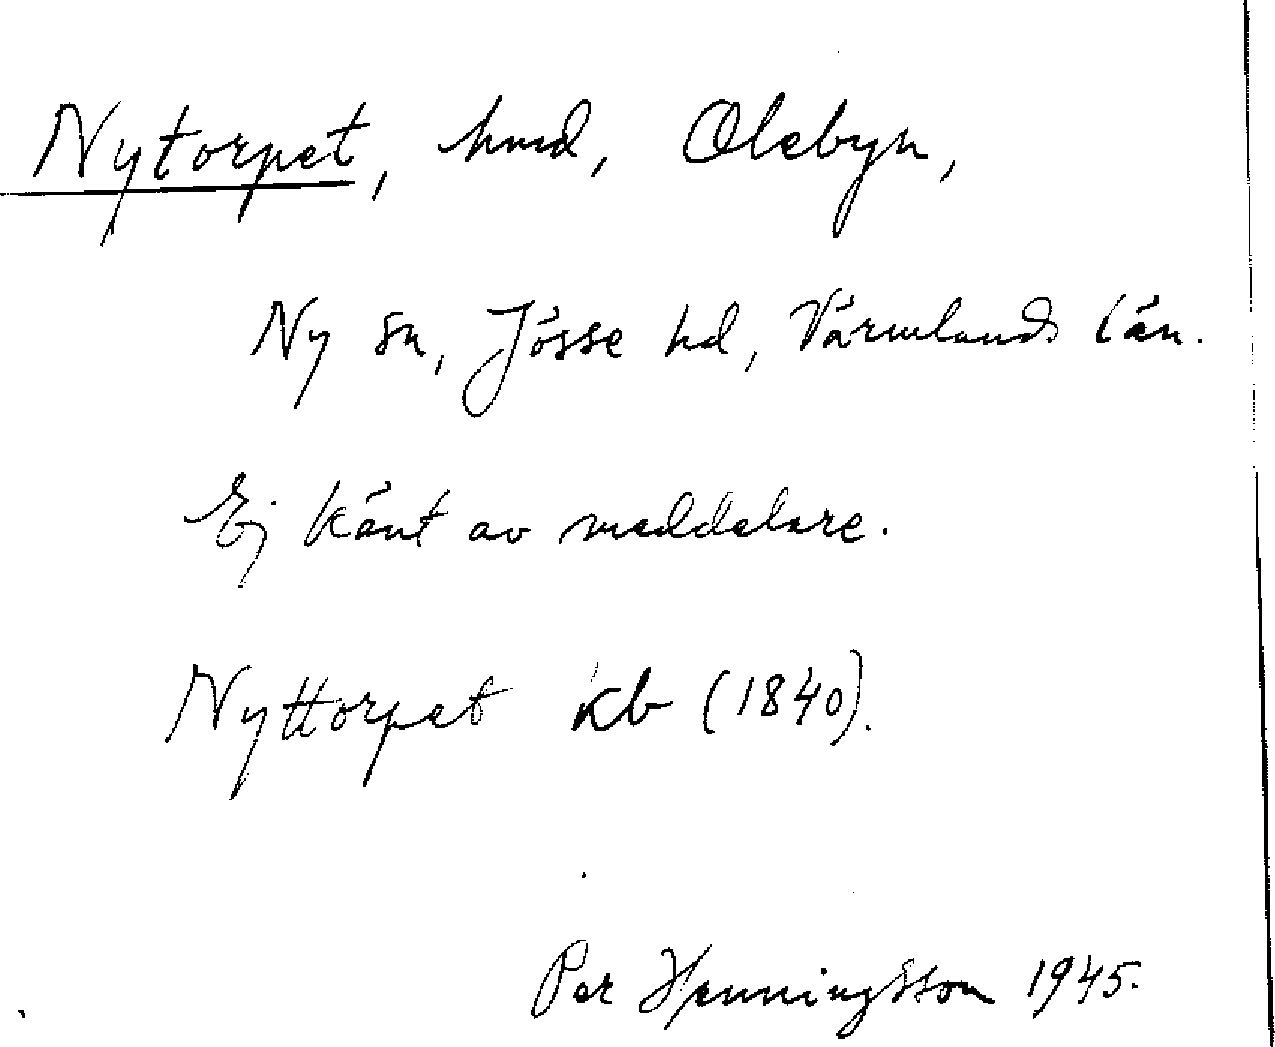 Nytorpet, hmd, Olebyn,
Ny sn, Jösse hd, Värmlands län.
Ej känt av meddelare.
Nyttorpet kb (1840).
Per Henningsson 1945.